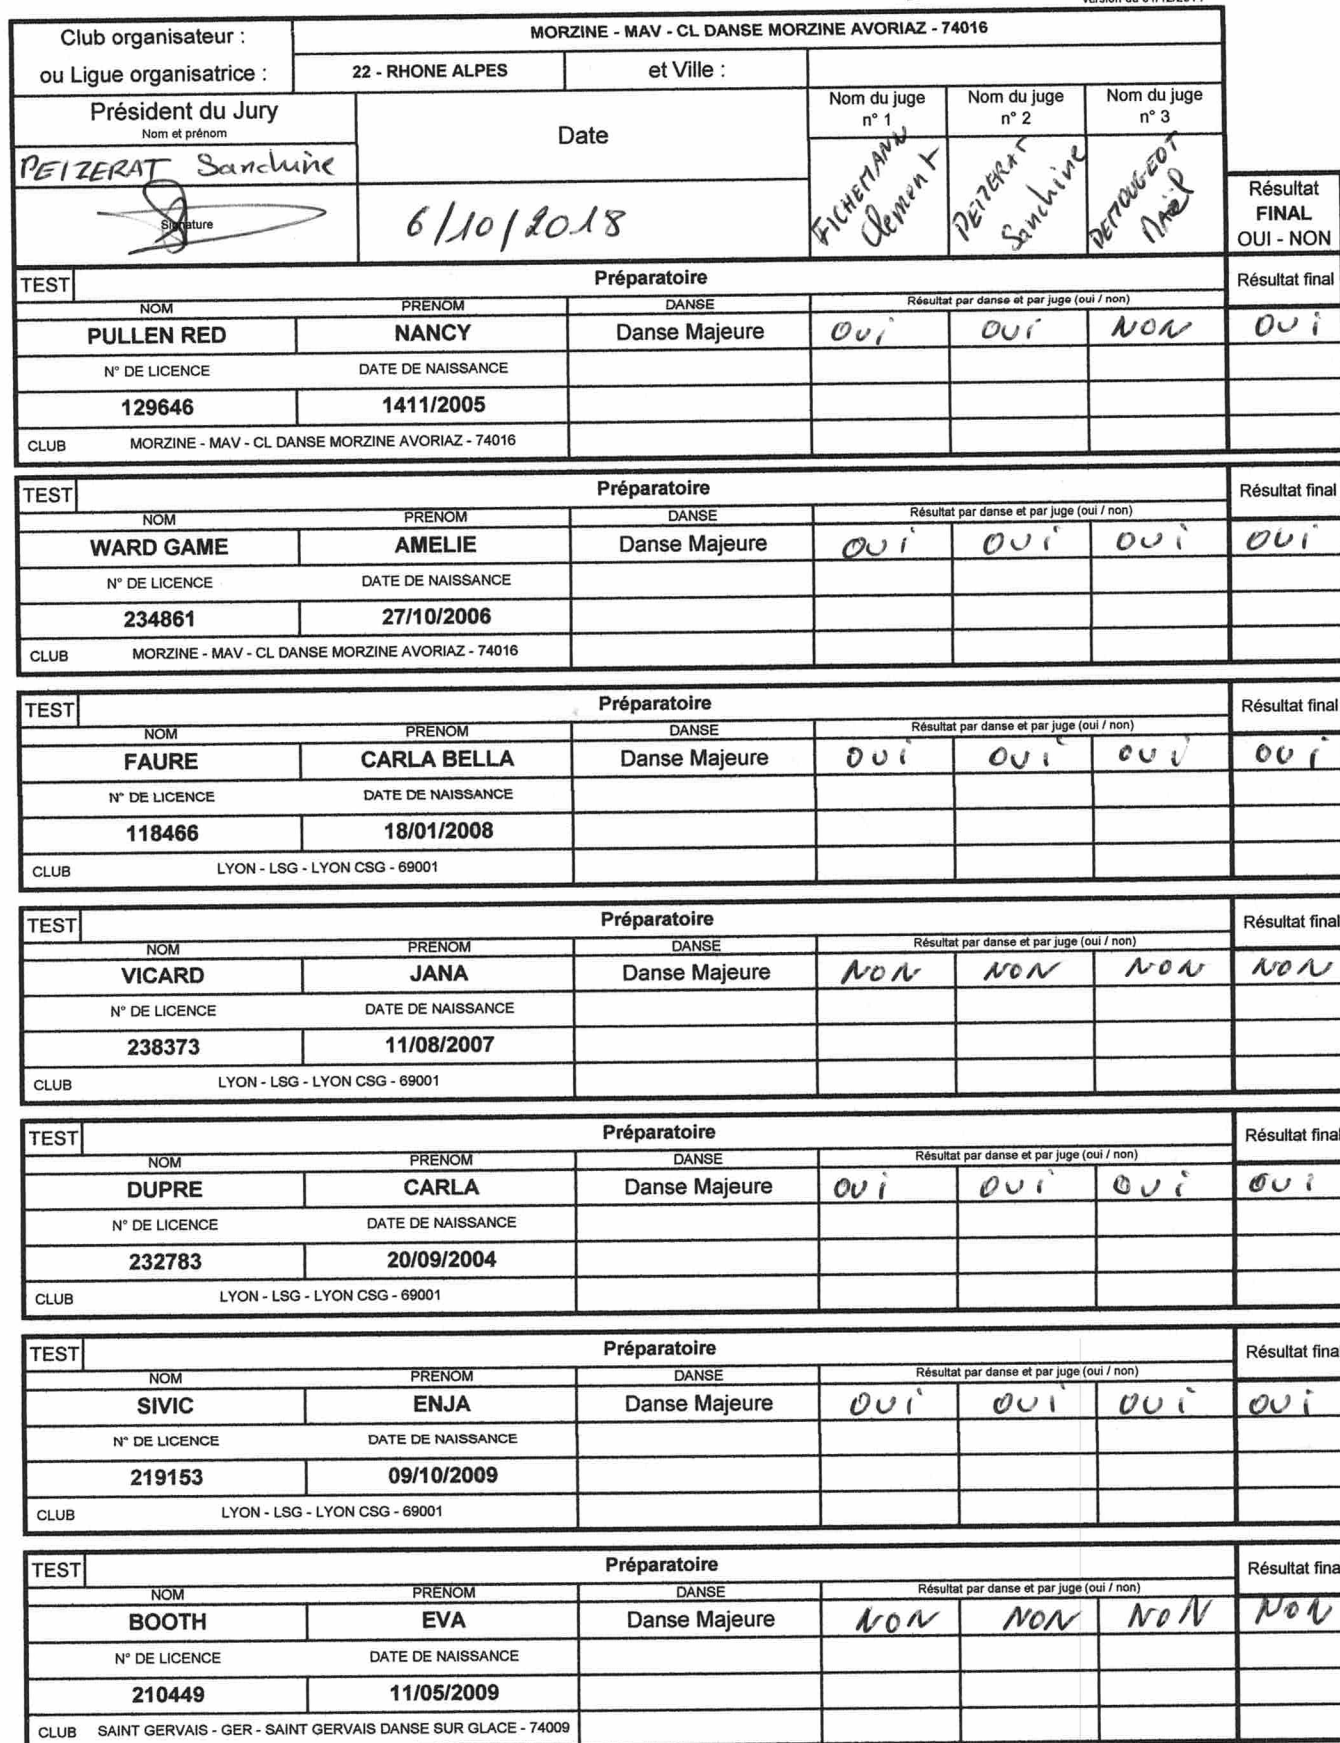 Club organisateur : MORZINE - MAV - CL DANSE MORZINE AVORIAZ - 74016
ou Ligue organisatrice : 22 - RHONE ALPES et Ville :
Président du Jury Date Nom du juge n° 1 Nom du juge n° 2 Nom du juge n° 3
Nom et prénom
PEIZERAT Sandrine FICHEMANN Clement PEIZERAT Sandrine DEMOUGEOT Maël
Signature 6/10/2018
Résultat
FINAL
OUI - NON
TEST Préparatoire Résultat final
NOM PRENOM DANSE Résultat par danse et par juge (oui / non)
PULLEN RED NANCY Danse Majeure OUi OUi NON OUi
N° DE LICENCE DATE DE NAISSANCE
129646 1411/2005
CLUB MORZINE - MAV - CL DANSE MORZINE AVORIAZ - 74016
TEST Préparatoire Résultat final
NOM PRENOM DANSE Résultat par danse et par juge (oui / non)
WARD GAME AMELIE Danse Majeure OUi OUi OUi OUi
N° DE LICENCE DATE DE NAISSANCE
234861 27/10/2006
CLUB MORZINE - MAV - CL DANSE MORZINE AVORIAZ - 74016
TEST Préparatoire Résultat final
NOM PRENOM DANSE Résultat par danse et par juge (oui / non)
FAURE CARLA BELLA Danse Majeure OUi OUi OUi OUi
N° DE LICENCE DATE DE NAISSANCE
118466 18/01/2008
CLUB LYON - LSG - LYON CSG - 69001
TEST Préparatoire Résultat final
NOM PRENOM DANSE Résultat par danse et par juge (oui / non)
VICARD JANA Danse Majeure NON NON NON NON
N° DE LICENCE DATE DE NAISSANCE
238373 11/08/2007
CLUB LYON - LSG - LYON CSG - 69001
TEST Préparatoire Résultat final
NOM PRENOM DANSE Résultat par danse et par juge (oui / non)
DUPRE CARLA Danse Majeure OUi OUi OUi OUi
N° DE LICENCE DATE DE NAISSANCE
232783 20/09/2004
CLUB LYON - LSG - LYON CSG - 69001
TEST Préparatoire Résultat fina
NOM PRENOM DANSE Résultat par danse et par juge (oui / non)
SIVIC ENJA Danse Majeure OUi OUi OUi OUi
N° DE LICENCE DATE DE NAISSANCE
219153 09/10/2009
CLUB LYON - LSG - LYON CSG - 69001
TEST Préparatoire Résultat fina
NOM PRENOM DANSE Résultat par danse et par juge (oui / non)
BOOTH EVA Danse Majeure NON NON NON NON
N° DE LICENCE DATE DE NAISSANCE
210449 11/05/2009
CLUB SAINT GERVAIS - GER - SAINT GERVAIS DANSE SUR GLACE - 74009